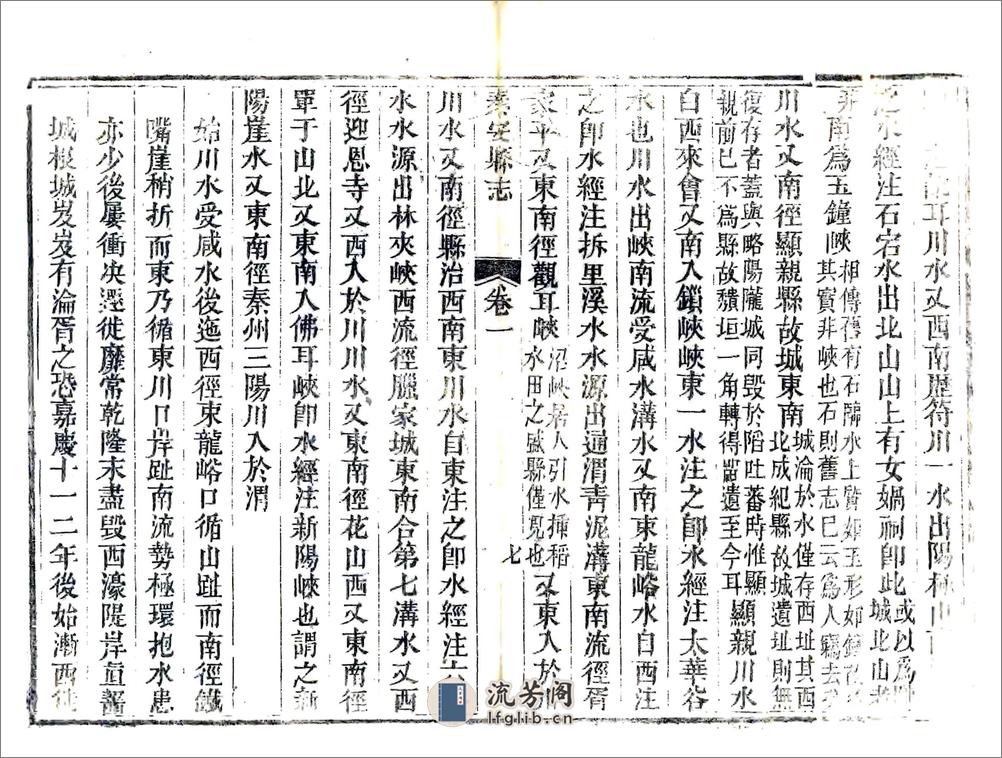 耳川水又西南歷符川一水出陽
水經注石宕水出北山山上有女媧祠卽此或以爲
城北山者
南爲玉鐘峽相傳舊有石隔水上聲如玉形如鐘
其實非峽也石則舊志巳云爲人竊去
川水又南徑顯親縣故城東南城淪於水僅存西址其西
北成紀縣故城遺址則無
復存者蓋與略陽隴城同毀於陷吐蕃時惟顯
親前巳不爲縣故頹垣一角轉得留遺至今耳顯親川水
自西來會又南入鎖峽峽東一水注之卽水經注太華谷
水也川水出峽南流受咸水溝水又南東龍峪水自西注
之卽水經注折里溪水水源出通渭靑泥溝東南流徑胥
家平又東南徑觀耳峽沿峽居人引水揷稻
水田之盛縣僅見也又東入於
秦安縣志 卷一 七
川水又南徑縣治西南東川水自東注之卽水經注六
水水源出林夾峽西流徑臘家城東南合第七溝水又西
徑迎恩寺又西入於川川水又東南徑花山西又東南徑
單于山北又東南入佛耳峽卽水經注新陽峽也謂之新
陽崖水又東南徑秦州三陽川入於渭
始川水受咸水後迤西徑東龍峪口循山趾而南徑鐵
嘴崖稍折而東乃循東川口岸趾南流勢極環抱水患
亦少後屢衝决遷徙靡常乾隆末盡毀西濠隄岸直齧
城根城岌岌有淪胥之恐嘉慶十一二年後始漸西徙
流芳阁
lfglib.cn